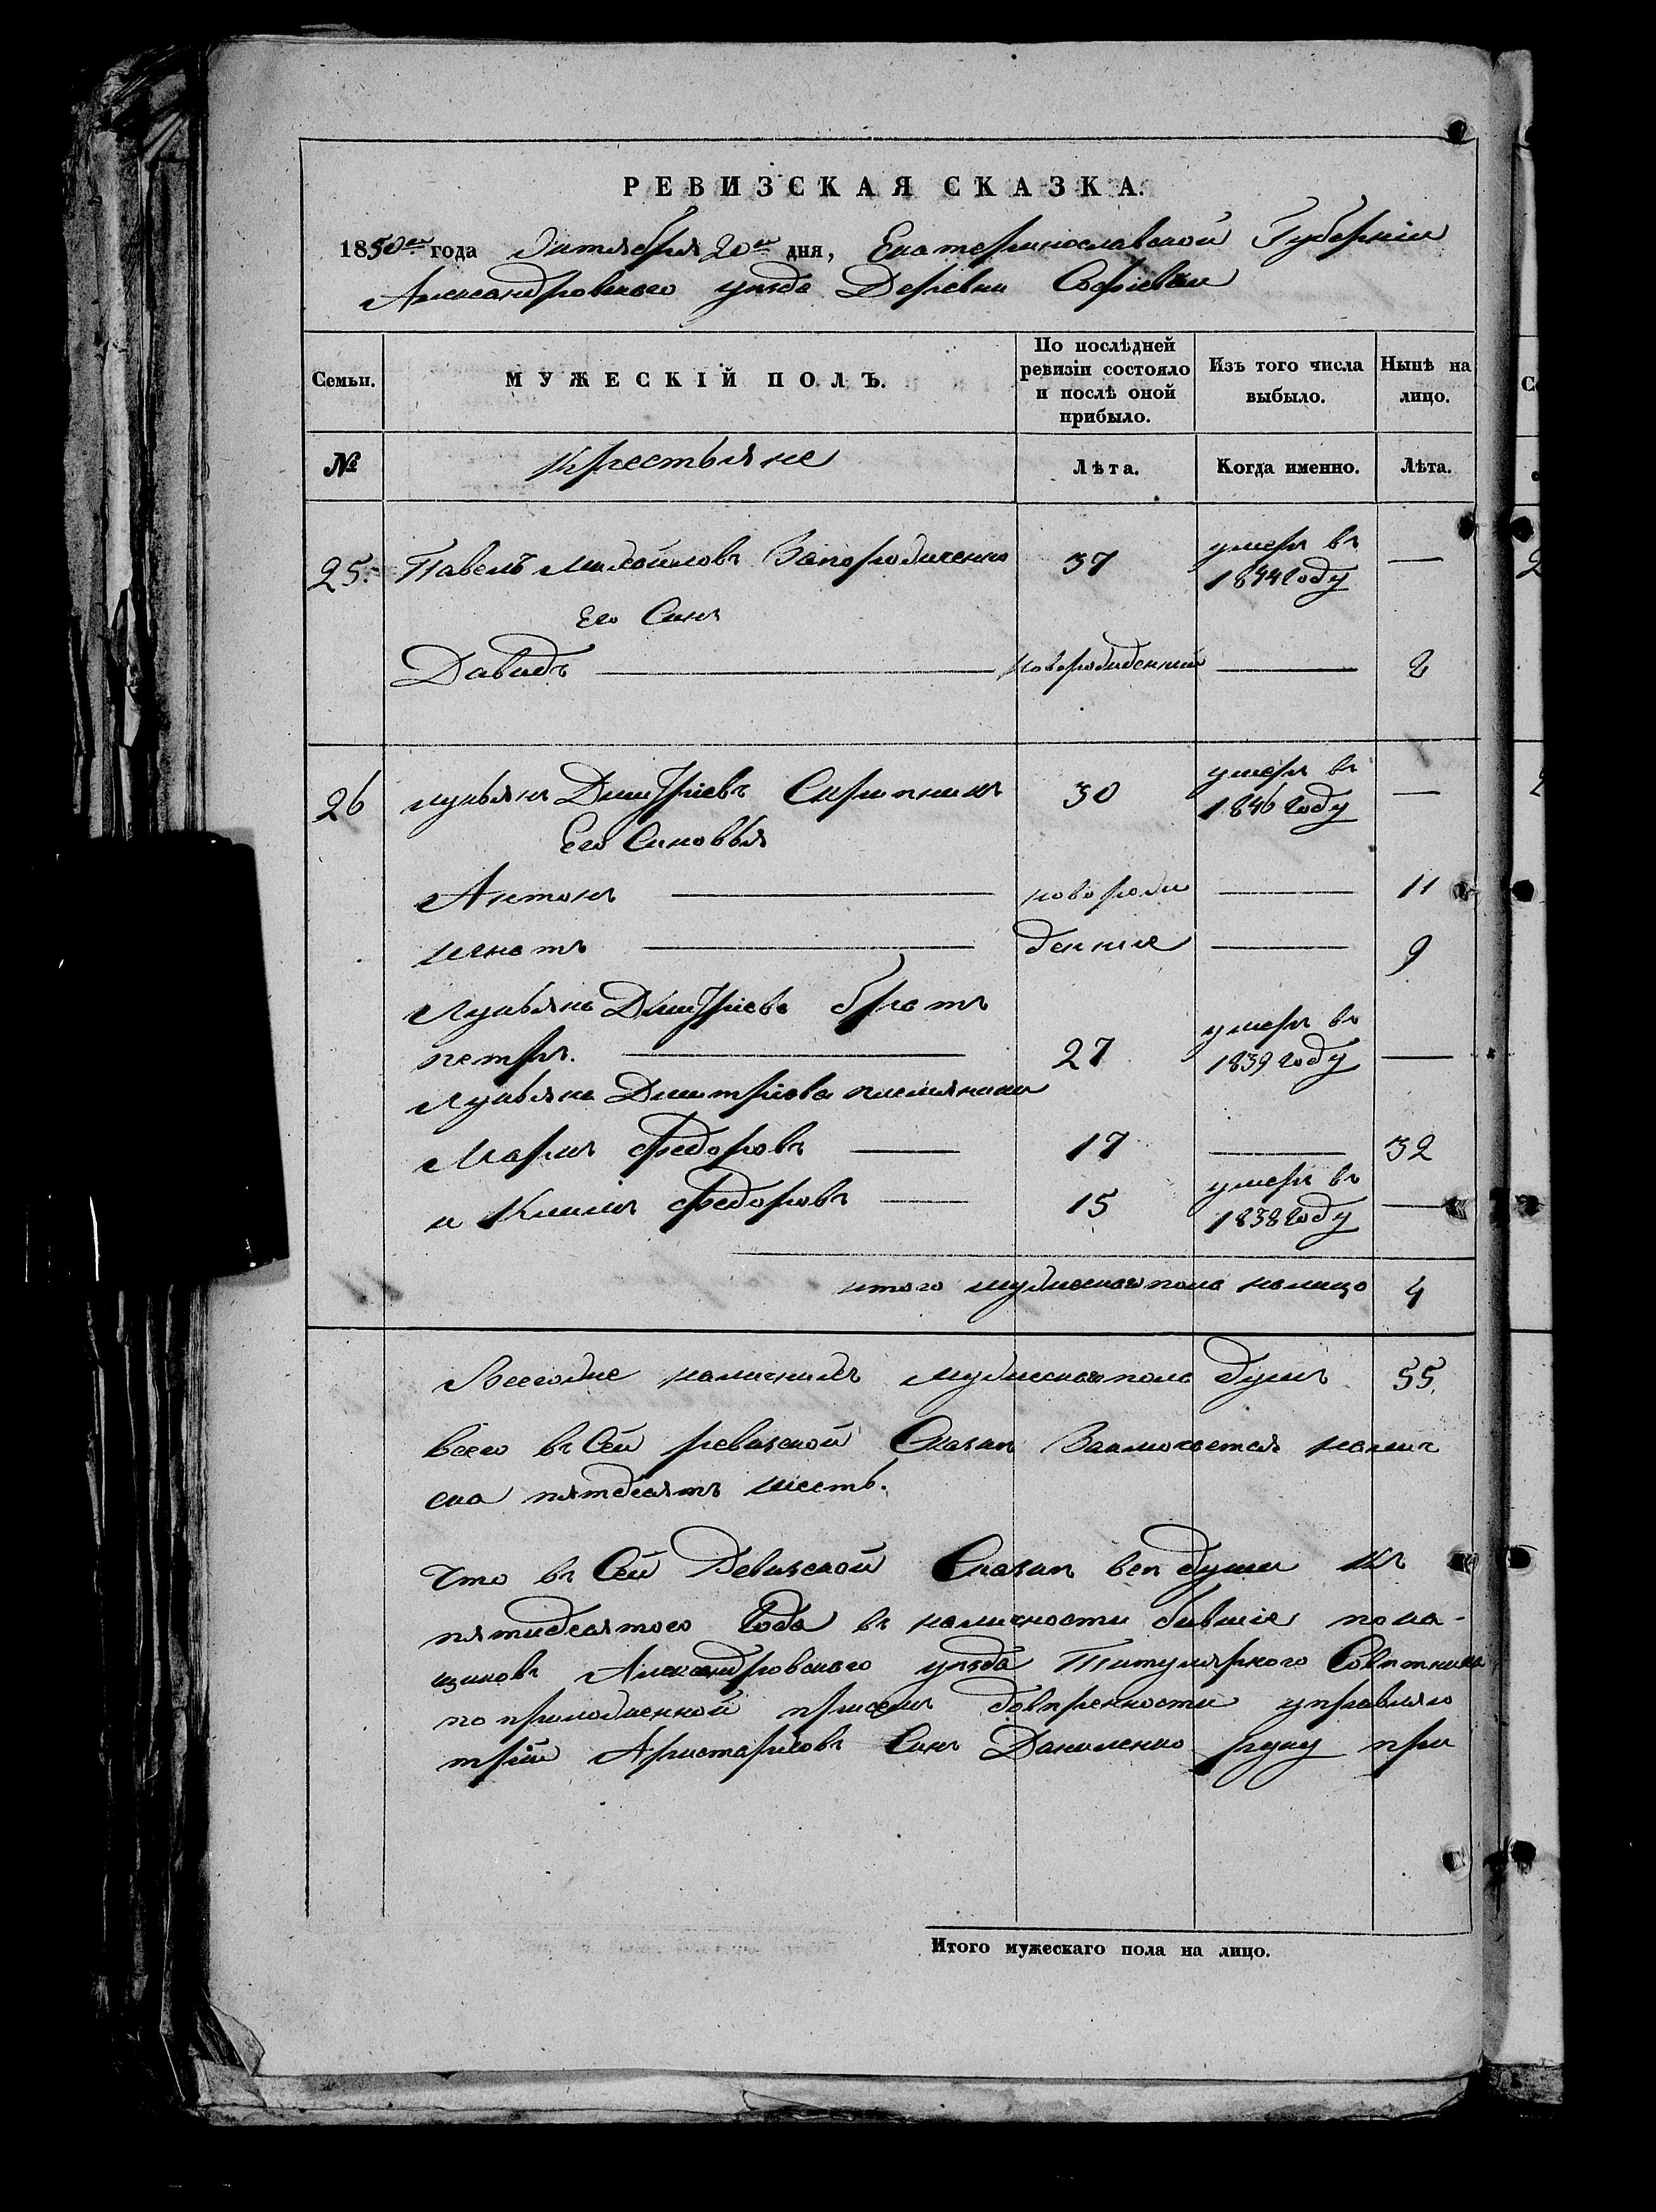 РЕВИЗСКАЯ СКАЗКА.
1850го года Октября 20го дня, Екатеринославской Губерніи
Александровского уѣзда Деревни Софіевки
Семьи.
МУЖЕСКІЙ ПОЛЪ.
По послѣдней
ревизіи состояло
и послѣ оной
прибыло.
Изъ того числа
выбыло.
Нынѣ на
лицо.
№
Крестьяне
Лѣта.
Когда именно.
Лѣта.
25. Павелъ Михайловъ Запорожченко 37 умеръ въ 1844 году —
Его Синъ
Давидъ — новорожденний — 8
26 Лукьянъ Дмитріевъ Скрипникъ 30 умеръ въ 1846 году —
Его Синовья
Антонъ — новорож — 11
Игнатъ — денние — 9
Лукьяна Дмитріева братъ
Петръ. — 27 умеръ въ 1839 году —
Лукьяна Дмитріева племяники
Маркъ Федоровъ — 17 — 32
и Климъ Федоровъ — 15 умеръ въ 1838 году —
итого мужескаго пола налицо 4
Всего же наличнихъ мужескаго пола душъ 55.
Всего въ Сей ревизской Сказкѣ Заключается налич
ска пятдесятъ шесть.
Что въ Сей Ревизской Сказкѣ всѣ души къ
пятидесятого Года въ наличности бившіе пока-
щиковъ Александровского уѣзда Титулярного Совѣтника
по приложенной при семъ довѣренности управляю
трій Аристарховъ Синъ Даниленко руку при
Итого мужескаго пола на лицо.